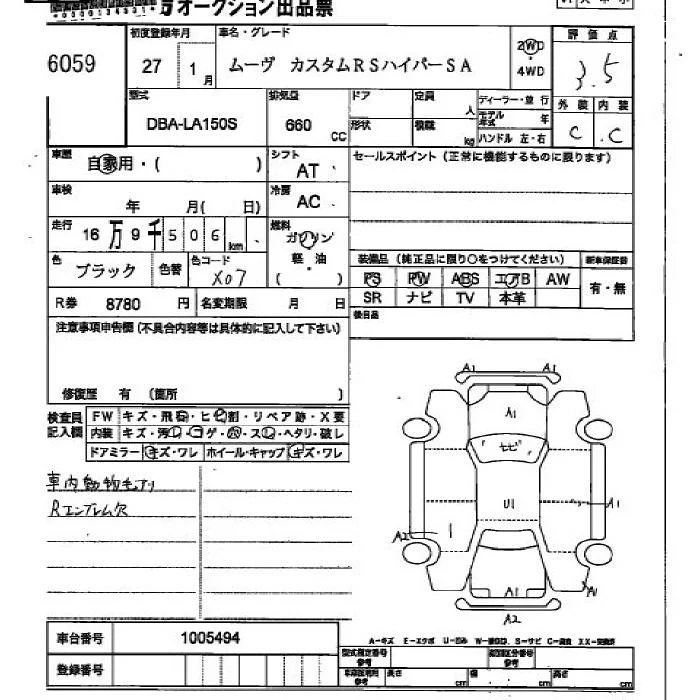 オークション出品票
6059
初度登録年月
27 1月
車名・グレード
ムーヴ カスタムRSハイパーSA
2WD
・
4WD
評価点
3.5
外装 内装
C C
型式
DBA-LA150S
排気量
660 CC
ドア
形状
定員 人
積載 kg
ディーラー・並行
モデル年式 年
ハンドル 左・右
車歴
自家用・( )
シフト
AT
セールスポイント(正常に機能するものに限ります)
車検
年 月( 日)
冷房
AC
走行
16万9千506km
燃料
ガソリン
・
軽油
( )
色
ブラック
色替
色コード
X07
装備品 (純正品に限り〇をつけてください)
新車保証書
PS PW ABS エアB AW
SR ナビ TV 本革
有・無
R券 8780 円
名変期限 月 日
後日品
注意事項申告欄(不具合内容等は具体的に記入して下さい)
修復歴 有 (箇所 )
検査員記入欄
FW キズ・飛石・ヒビ割・リペア跡・X要
内装 キズ・汚れ・コゲ・穴・スレ・ヘタリ・破レ
ドアミラー キズ・ワレ ホイール・キャップ キズ・ワレ
車内動物毛アリ
Rエンブレム欠
A1 A1
A1
トビ
U1
A1
A2
A1
A1
A2
車台番号 1005494
A-キズ E-エクボ U-凹み S-サビ
登録番号
型式指定番号 参考
類別区分番号 参考
長さ cm 幅 cm 高さ cm